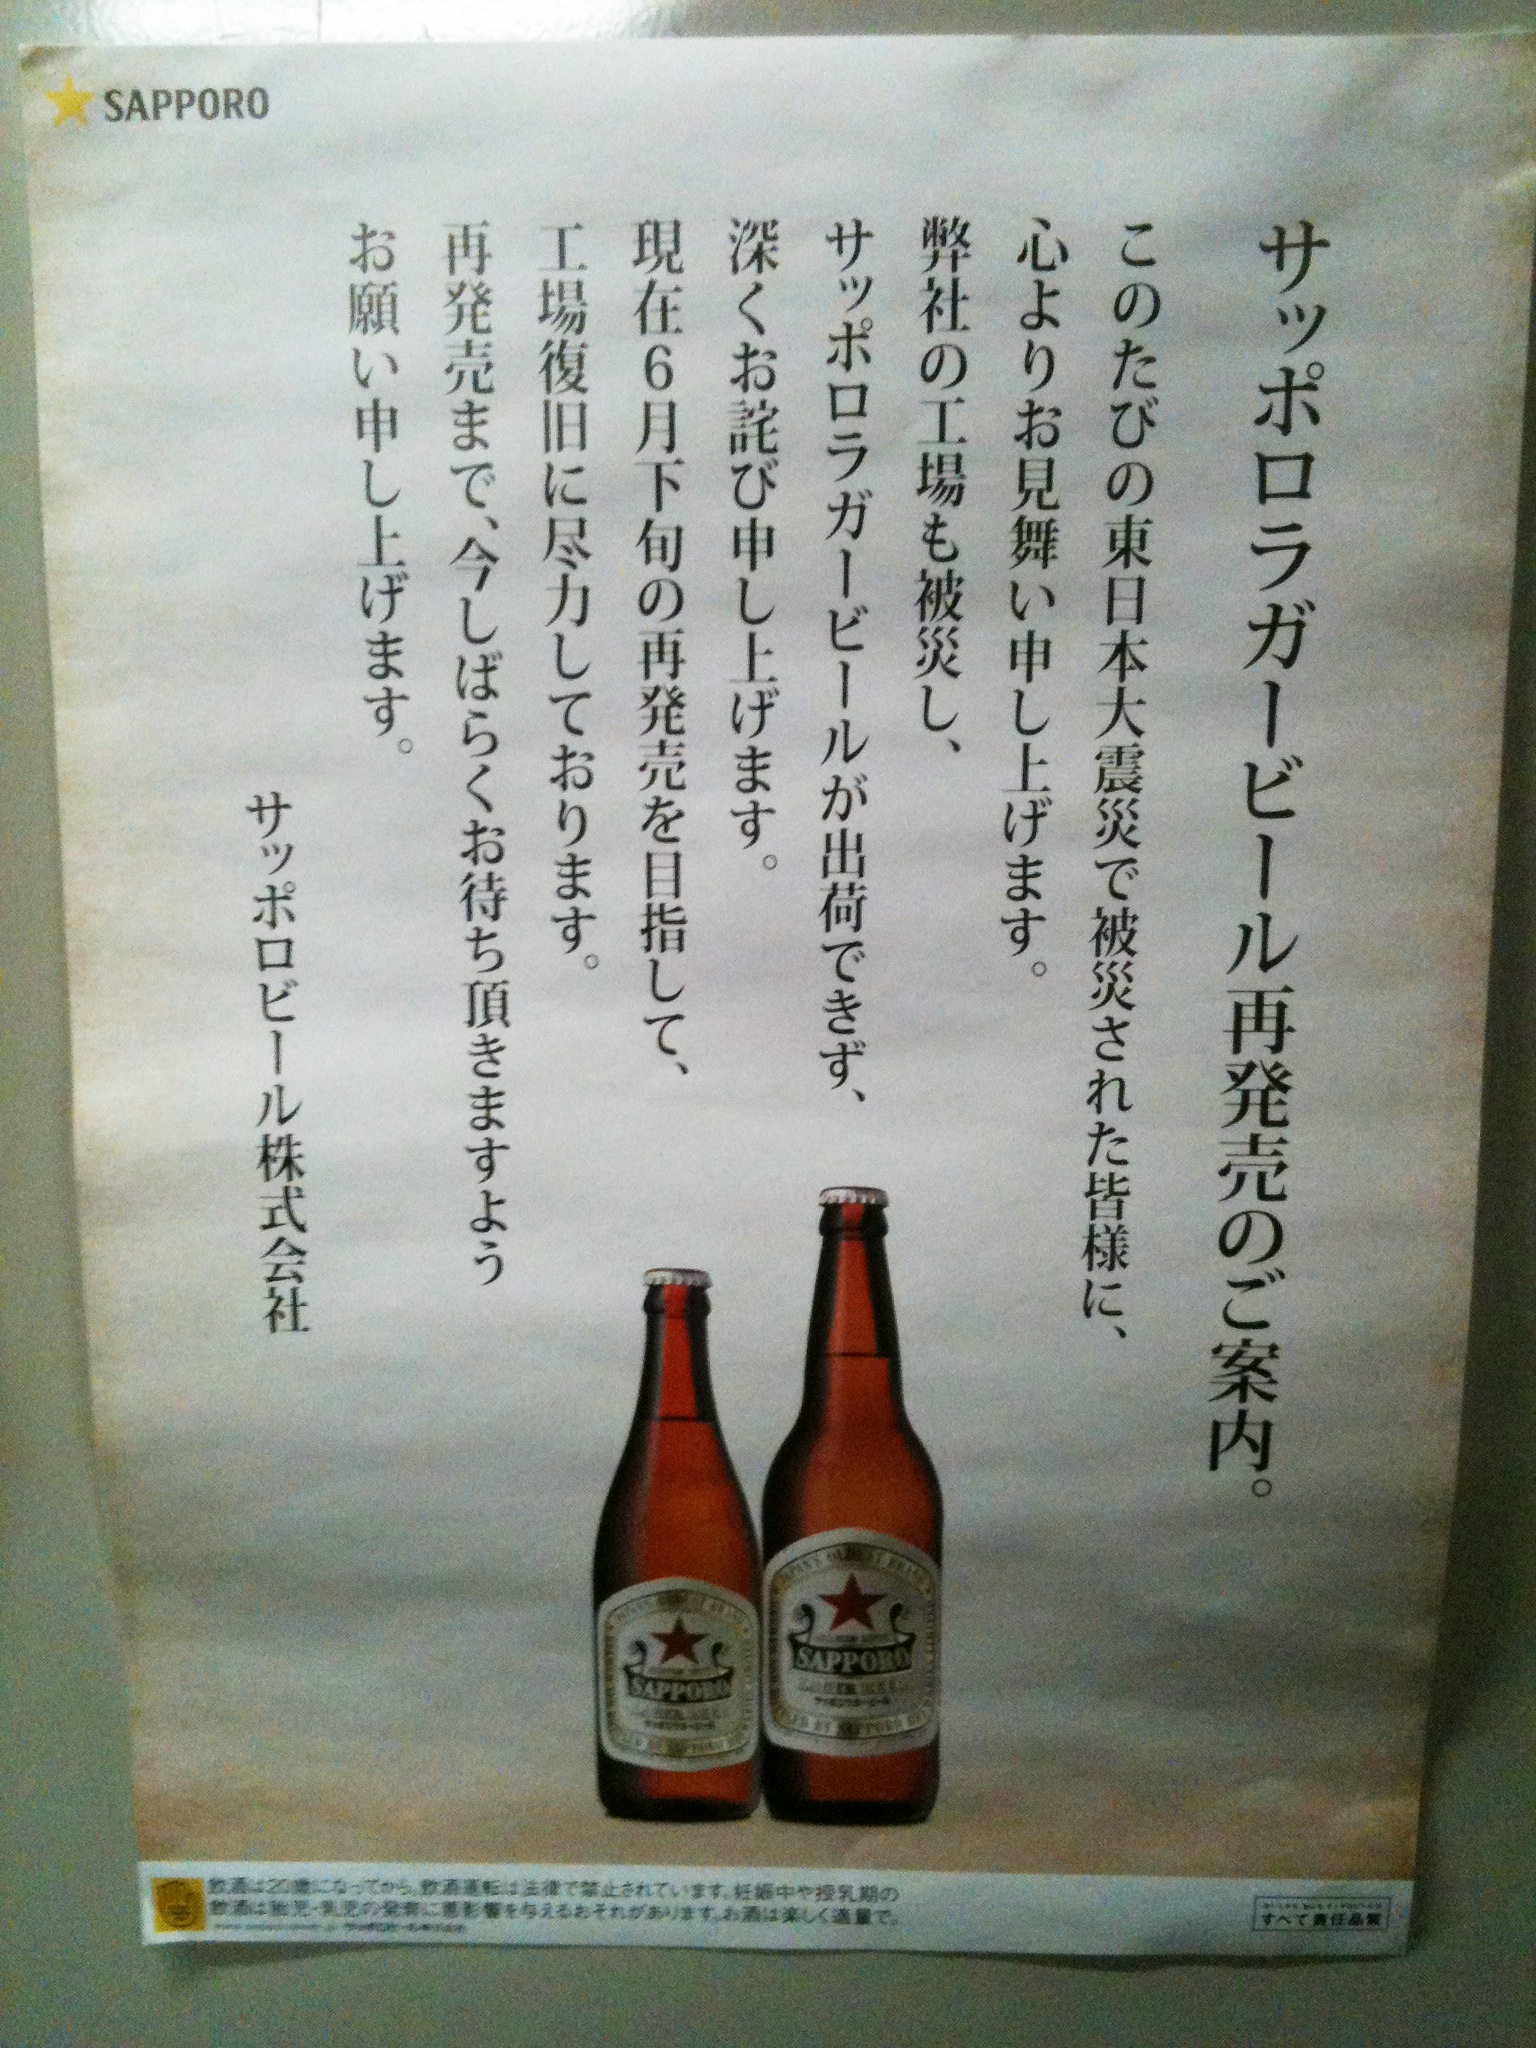 SAPPORO
サッポロラガービール再発売のご案内。
このたびの東日本大震災で被災された皆様に、
心よりお見舞い申し上げます。
弊社の工場も被災し、
サッポロラガービールが出荷できず、
深くお詫び申し上げます。
現在6月下旬の再発売を目指して、
工場復旧に尽力しております。
再発売まで、今しばらくお待ち頂きますよう
お願い申し上げます。
サッポロビール株式会社
SAPPORO
SAPPORO
飲酒は20歳になってから。飲酒運転は法律で禁止されています。妊娠中や授乳期の
飲酒は胎児・乳児の発育に悪影響を与えるおそれがあります。お酒は楽しく適量で。
すべて責任品質